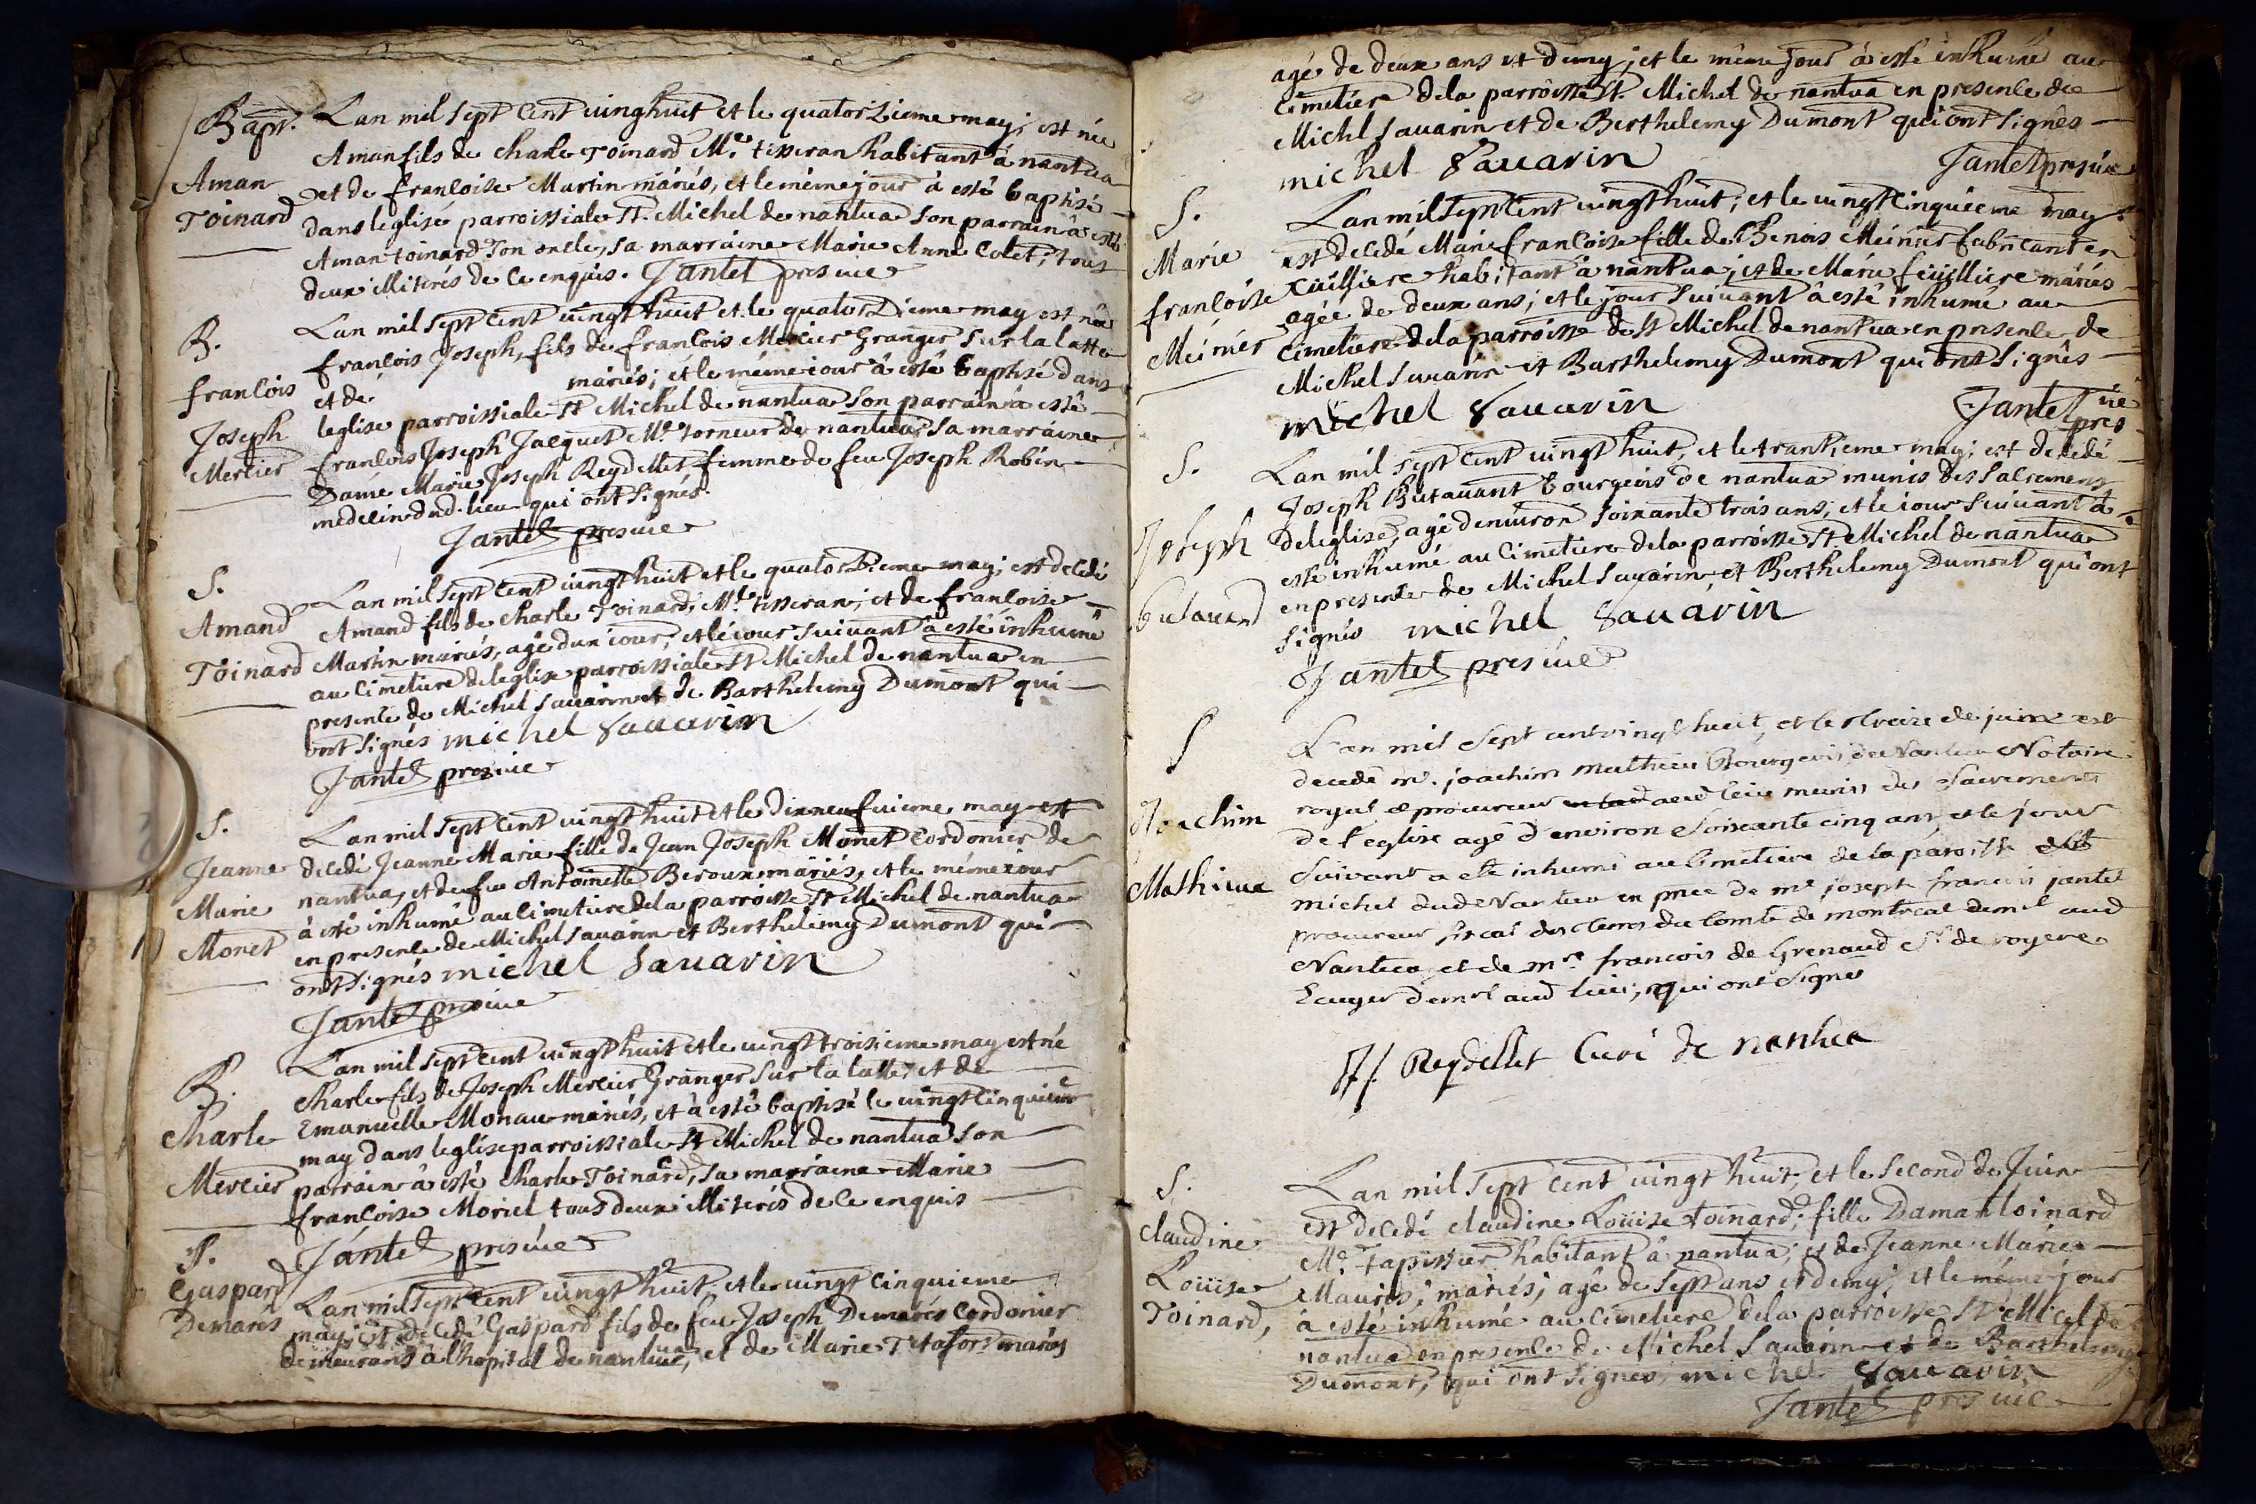 Bapt. Lan mil sept cent vinght huit et le quatorzieme may; est née
Aman fils de charle Toinard Me. tisseran habitant à nantua
Aman
et de francoise Martin mariés, et le même jour à esté baptisé
Toinard
dans leglise parroissiale St. Michel de nantua son parrain à esté
Aman toinard son oncle, sa marraine Marie Anne Colet; tous
deux illiterés de ce enquis. Jantet presvice
B.
Lan mil sept cent vingt huit et le quatorzieme may est né
francois Joseph, fils de francois Mercier Granger sur la latte
francois
et de mariés; et le même iour à esté baptisé dans
Joseph
leglise parroissiale St Michel de nantua son parrain à esté
Mercier
francois Joseph Jacquet Me. torneur de nantua, sa marraine
Dame Marie Joseph Reydellet femme de feu Joseph Robin
medecin dud. lieu qui ont signés.
Jantet presvice
S.
Lan mil sept cent vingt huit et le quatorzieme may; est decedé
Amand
Amand fils de charle Toinard; Me. tisseran; et de francoise
Toinard
Martin mariés, agé dun iour; et le iour suivant à esté inhumé
au cimetiere de leglise parroissiale St Michel de nantua en
presence de Michel Savarin et de Barthelemy Dumont qui
ont signés michel Savarin
Jantet presvice
S.
Lan mil sept cent vingt huit et le dixneufvieme may est
Jeanne
decedé Jeanne Marie fille de Jean Joseph Monet cordonier de
Marie
nantua, et de feu Antoinette Beroux mariés, et le même iour
Monet
à esté inhumé au cimetiere de la parroisse St Michel de nantua
en presence de Michel Savarin et Berthelemy Dumont qui
ont signés michel Savarin
Jantet presvice
B.
Lan mil sept cent vingt huit et le vingt troisieme may est né
Charle
Charle fils de Joseph Mercier Granger sur la latte; et de
Emanuelle Monau mariés, et à esté baptisé le vingt cinquieme
Mercier
may dans leglise parroissiale St Michel de nantua son
parrain à esté Charle Toinard, sa marraine Marie
francoise Moriel tous deux illiterés de ce enquis
Jantet presvice
S.
Gaspard
Lan mil sept cent vingt huit, et le vingt cinquieme
Demarés
may; est decedé Gaspard fils de feu Joseph Demarés cordonier
demeurant à lhopital de nantua, et de Marie mariés
agé de deux ans et demy; et le même jour à esté inhumé au
cimetiere de la parroisse St. Michel de nantua en presence de
Michel Savarin et de Berthelemy Dumont qui ont signés
michel Savarin Jantet presvice
S.
Lan mil sept cent vingt huit; et le vingt cinquieme may
Marie
est decedé Marie francoise fille de Benois Meinier fabricant en
francoise
cuilliere habitant à nantua; et de Marie feüilliere mariés
Meinier
agée de deux ans; et le jour suivant à esté inhumé au
cimetiere de la parroisse de St Michel de nantua en presence de
Michel Savarin et Barthelemy Dumont qui ont signés
michel Savarin Jantet presvice
S.
Lan mil sept cent vingt huit, et le trantieme may; est decedé
Joseph
Joseph Butavant bourgeois de nantua munis des sacremens
butavand
de leglise, agé denviron soixante trois ans; et le iour suivant à
esté inhumé au cimetiere de la parroisse St Michel de nantua
en presence de Michel Savarin et Berthelemy Dumont qui ont
signés michel Savarin
Jantet presvice
S
Lan mil sept cent vingt huit, et le treize de juin est
Joachim
decedé mr. joachim mathieu Bourgeois de Nantua Notaire
Mathieux
royal & procureur aud lieu munis des Sacrements
de l'eglise agé d'environ soixante cinq ans, et le jour
suivant a eté inhumé au cimetiere de la paroisse St
michel dud Nantua en pnce de mr joseph francois jantet
procureur fiscal des terres du comté de montreal demt aud
Nantua, et de mre francois de Grenaud Sr de royere
Ecuyer demt aud lieu, qui ont signés
Reydellet Curé de nantua
S.
Lan mil sept cent vingt huit, et le second de Juin
Claudine
est decedé claudine Loüise toinard; fille Daman toinard
Loüise
Me. tapissier habitant à nantua; et de Jeanne Marie
Toinard,
Mauris; mariés; agé de sept ans et demy; et le même jour
à esté inhumé au cimetiere de la parroisse St Micel de
nantua en presence de Michel Savarin et de Barthelemy
Dumont, qui ont signés michel Savarin
Jantet presvice